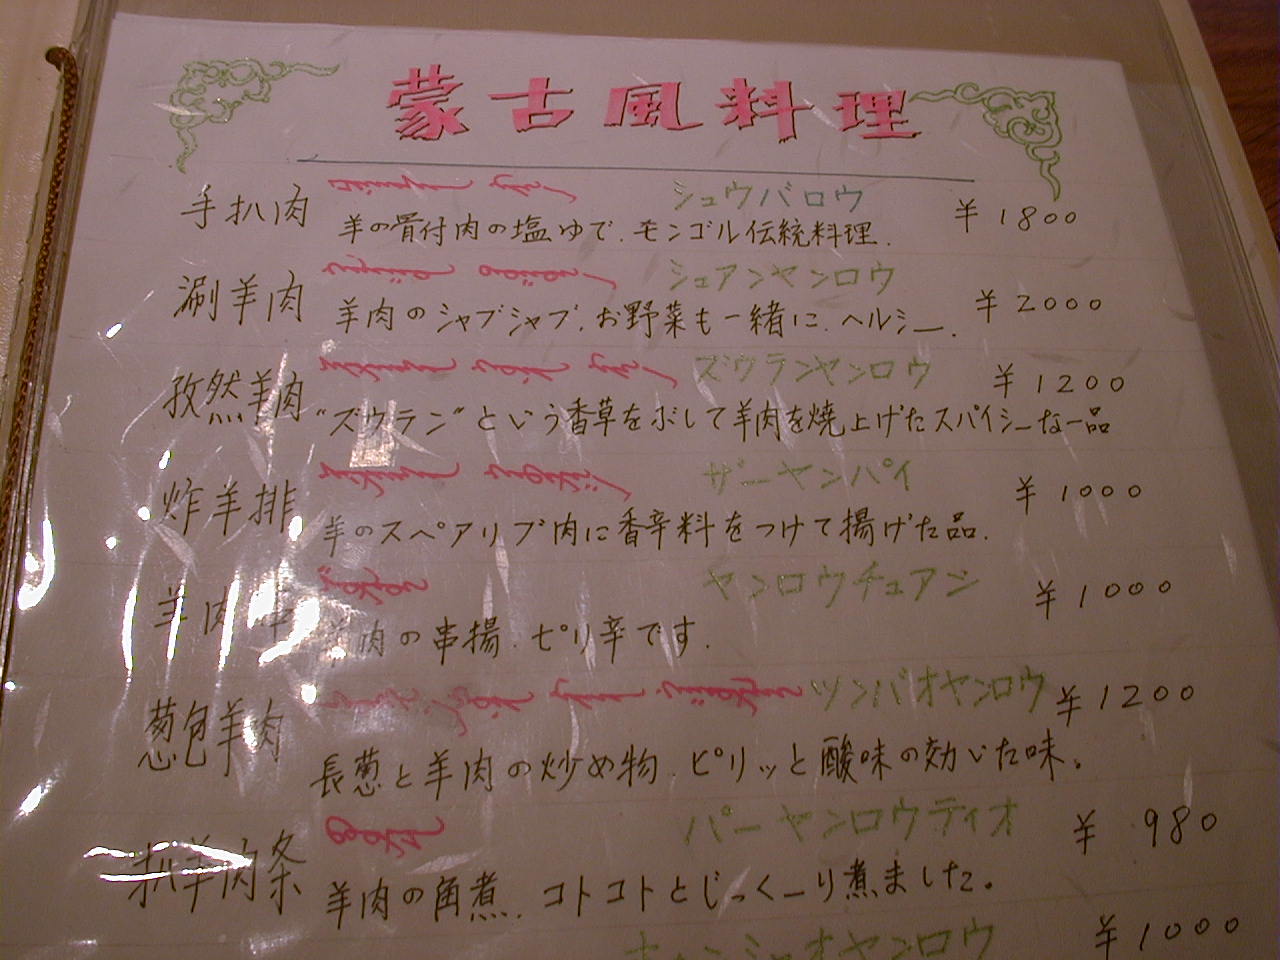 蒙古風料理
手扒肉 シュウバロウ ¥1800
羊の骨付肉の塩ゆで.モンゴル伝統料理.
涮羊肉 シュアンヤンロウ ¥2000
羊肉のシャブシャブ.お野菜も一緒に.ヘルシー.
孜然羊肉 ズウランヤンロウ ¥1200
"ズウラン"という香草をまぶして羊肉を焼上げたスパイシーな一品
炸羊排 ザーヤンパイ ¥1000
羊のスペアリブ肉に香辛料をつけて揚げた品.
羊肉串 ヤンロウチュアン ¥1000
羊肉の串揚.ピリ辛です.
葱包羊肉 ツンバオヤンロウ ¥1200
長葱と羊肉の炒め物.ピリッと酸味の効いた味。
扒羊肉条 パーヤンロウティオ ¥980
羊肉の角煮.コトコトとじっくーり煮ました。
¥1000